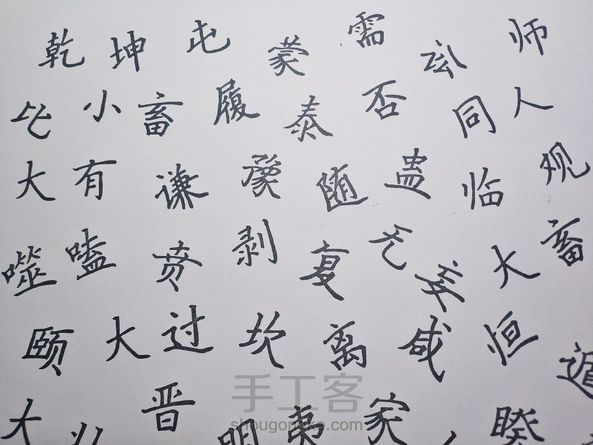 乾 坤 屯 蒙 需 讼 师
比 小 畜 履 泰 否 同 人
大 有 谦 豫 随 蛊 临 观
噬 嗑 贲 剥 复 无 妄 大 畜
颐 大 过 坎 离 咸 恒 遁
大 晋 明 夷 家 睽
手工客
shougongke.com